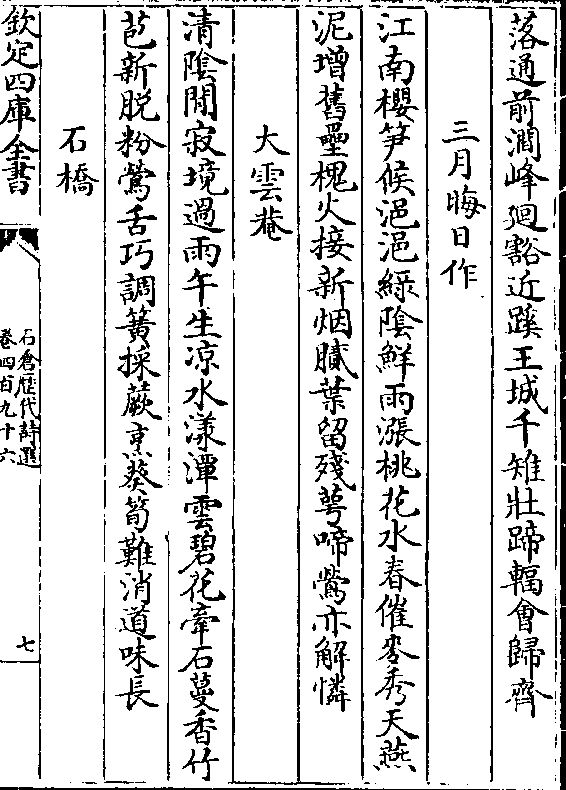 落通前澗峰廻豁近蹊王城千雉壯蹄輻會歸齊
三月晦日作
江南櫻笋候浥浥綠陰鮮雨漲桃花水春催麥秀天燕
泥增舊壘槐火接新烟膩葉留殘萼啼鶯亦解憐
大雲菴
清陰閒寂境過雨午生凉水漾潭雲碧花牽石蔓香竹
苞新脱粉鶯舌巧調簧採蕨烹葵筍難消道味長
石橋
欽定四庫全書
石倉歷代詩選
卷四百九十六
七